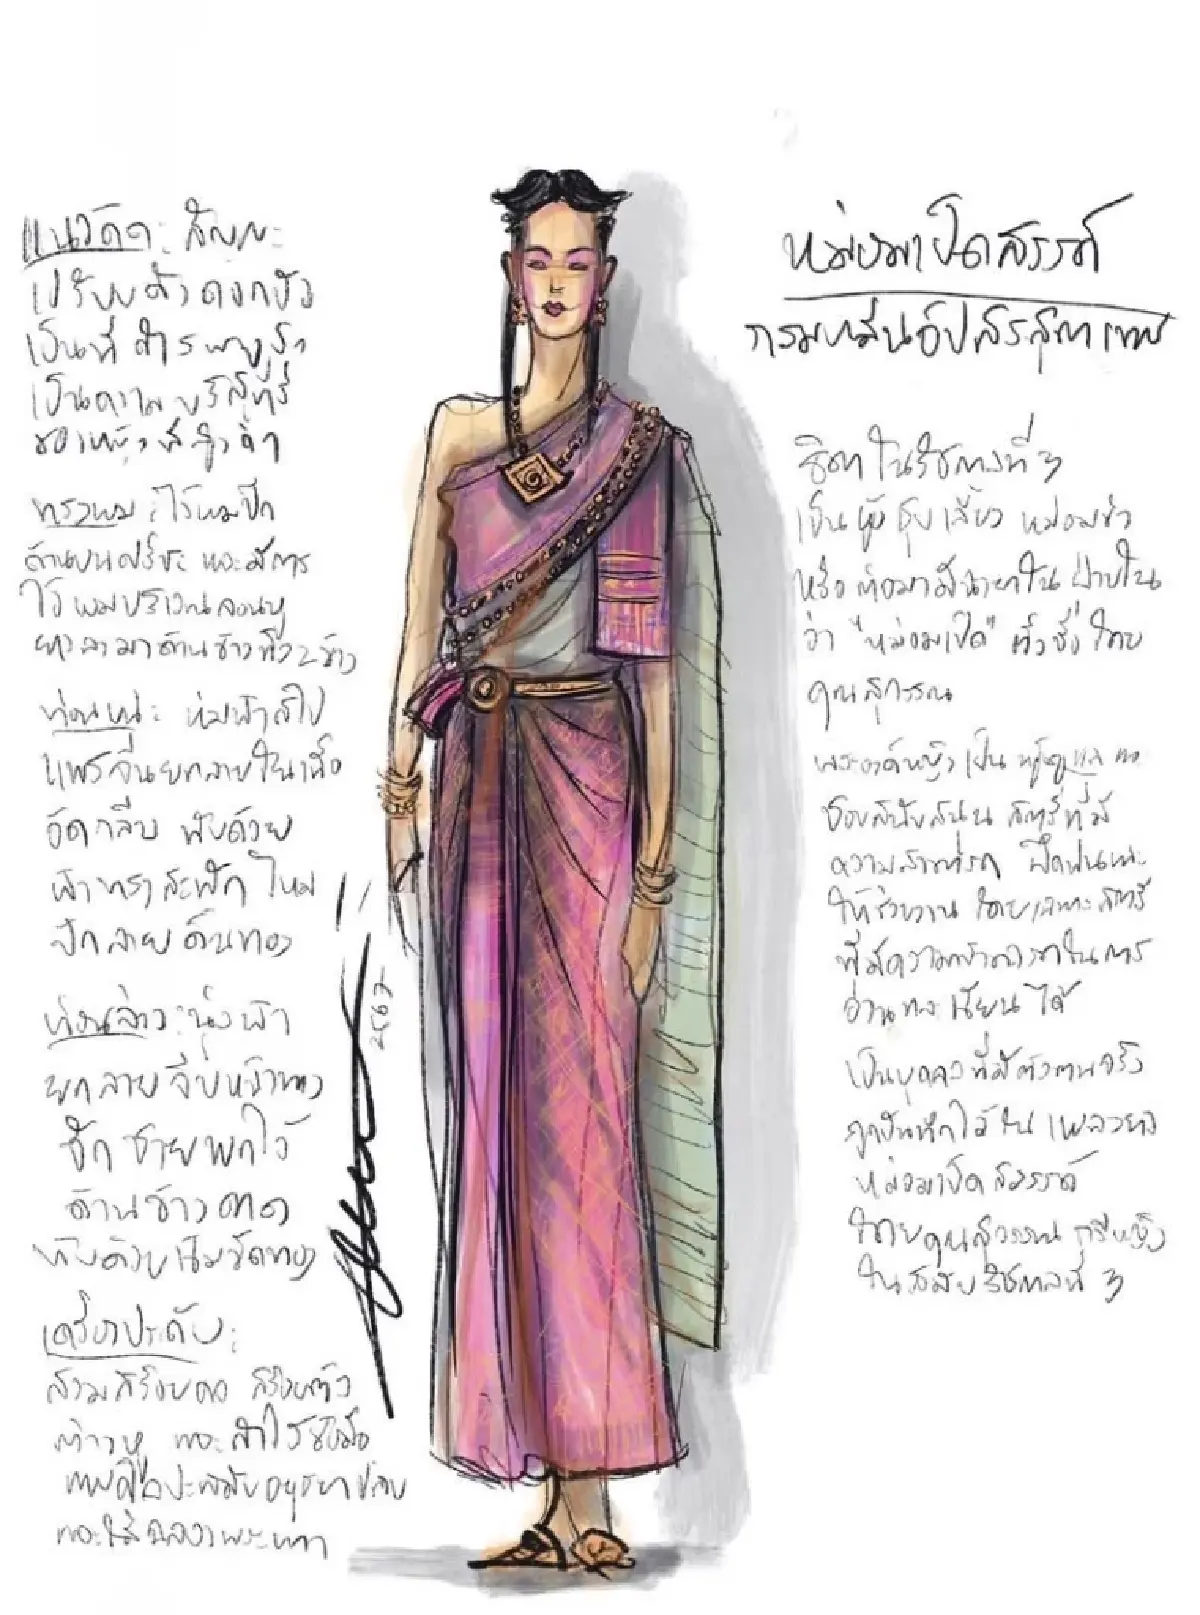 แนวคิด : สัญญะ
เปรียบดั่งดอกบัว
เป็นที่
เป็นความบริสุทธิ์
ของหญิง
ทรงผม : ไว้ผมปีก
ด้านบนศีรษะ และมีการ
ไว้ผมบริเวณจอนหู
ยาวลงมาด้านข้างทั้ง 2 ข้าง
ท่อนบน : ห่มผ้าสไบ
แพรจีนยกลายในเนื้อ
อัดกลีบ ทับด้วย
ผ้าทรงสะพักไหม
ปักลายดิ้นทอง
ท่อนล่าง : นุ่งผ้า
ยกลายจีบหน้านาง
ชักชายพกไว้
ด้านข้าง คาด
ทับด้วยเข็มขัดทอง
เครื่องประดับ :
สวมสร้อยคอ สร้อยตัว
ต่างหู และกำไรข้อมือ
ศิลปะสมัยอยุธยาปลาย
และใส่ฉลองพระบาท
2567
หม่อมเป็ดสวรรค์
กรมหมื่นอัปสรสุดาเทพ
ธิดาในรัชกาลที่ 3
เป็นผู้ชุบเลี้ยง หม่อมขำ
หรือต่อมามีฉายาใน ฝ่ายใน
ว่า "หม่อมเป็ด" ตั้งชื่อโดย
คุณสุวรรณ
พระองค์หญิง เป็นผู้ดูแล และ
ชอบสนับสนุน สตรีที่มี
ความสามารถ ฝึกฝนและ
ให้ร่วมงาน โดยเฉพาะสตรี
ที่มีความสามารถในการ
อ่านและเขียนได้
เป็นบุคคลที่มีตัวตนจริง
ถูกบันทึกไว้ใน เพลงยาว
หม่อมเป็ดสวรรค์
โดยคุณสุวรรณ กวีหญิง
ในสมัยรัชกาลที่ 3